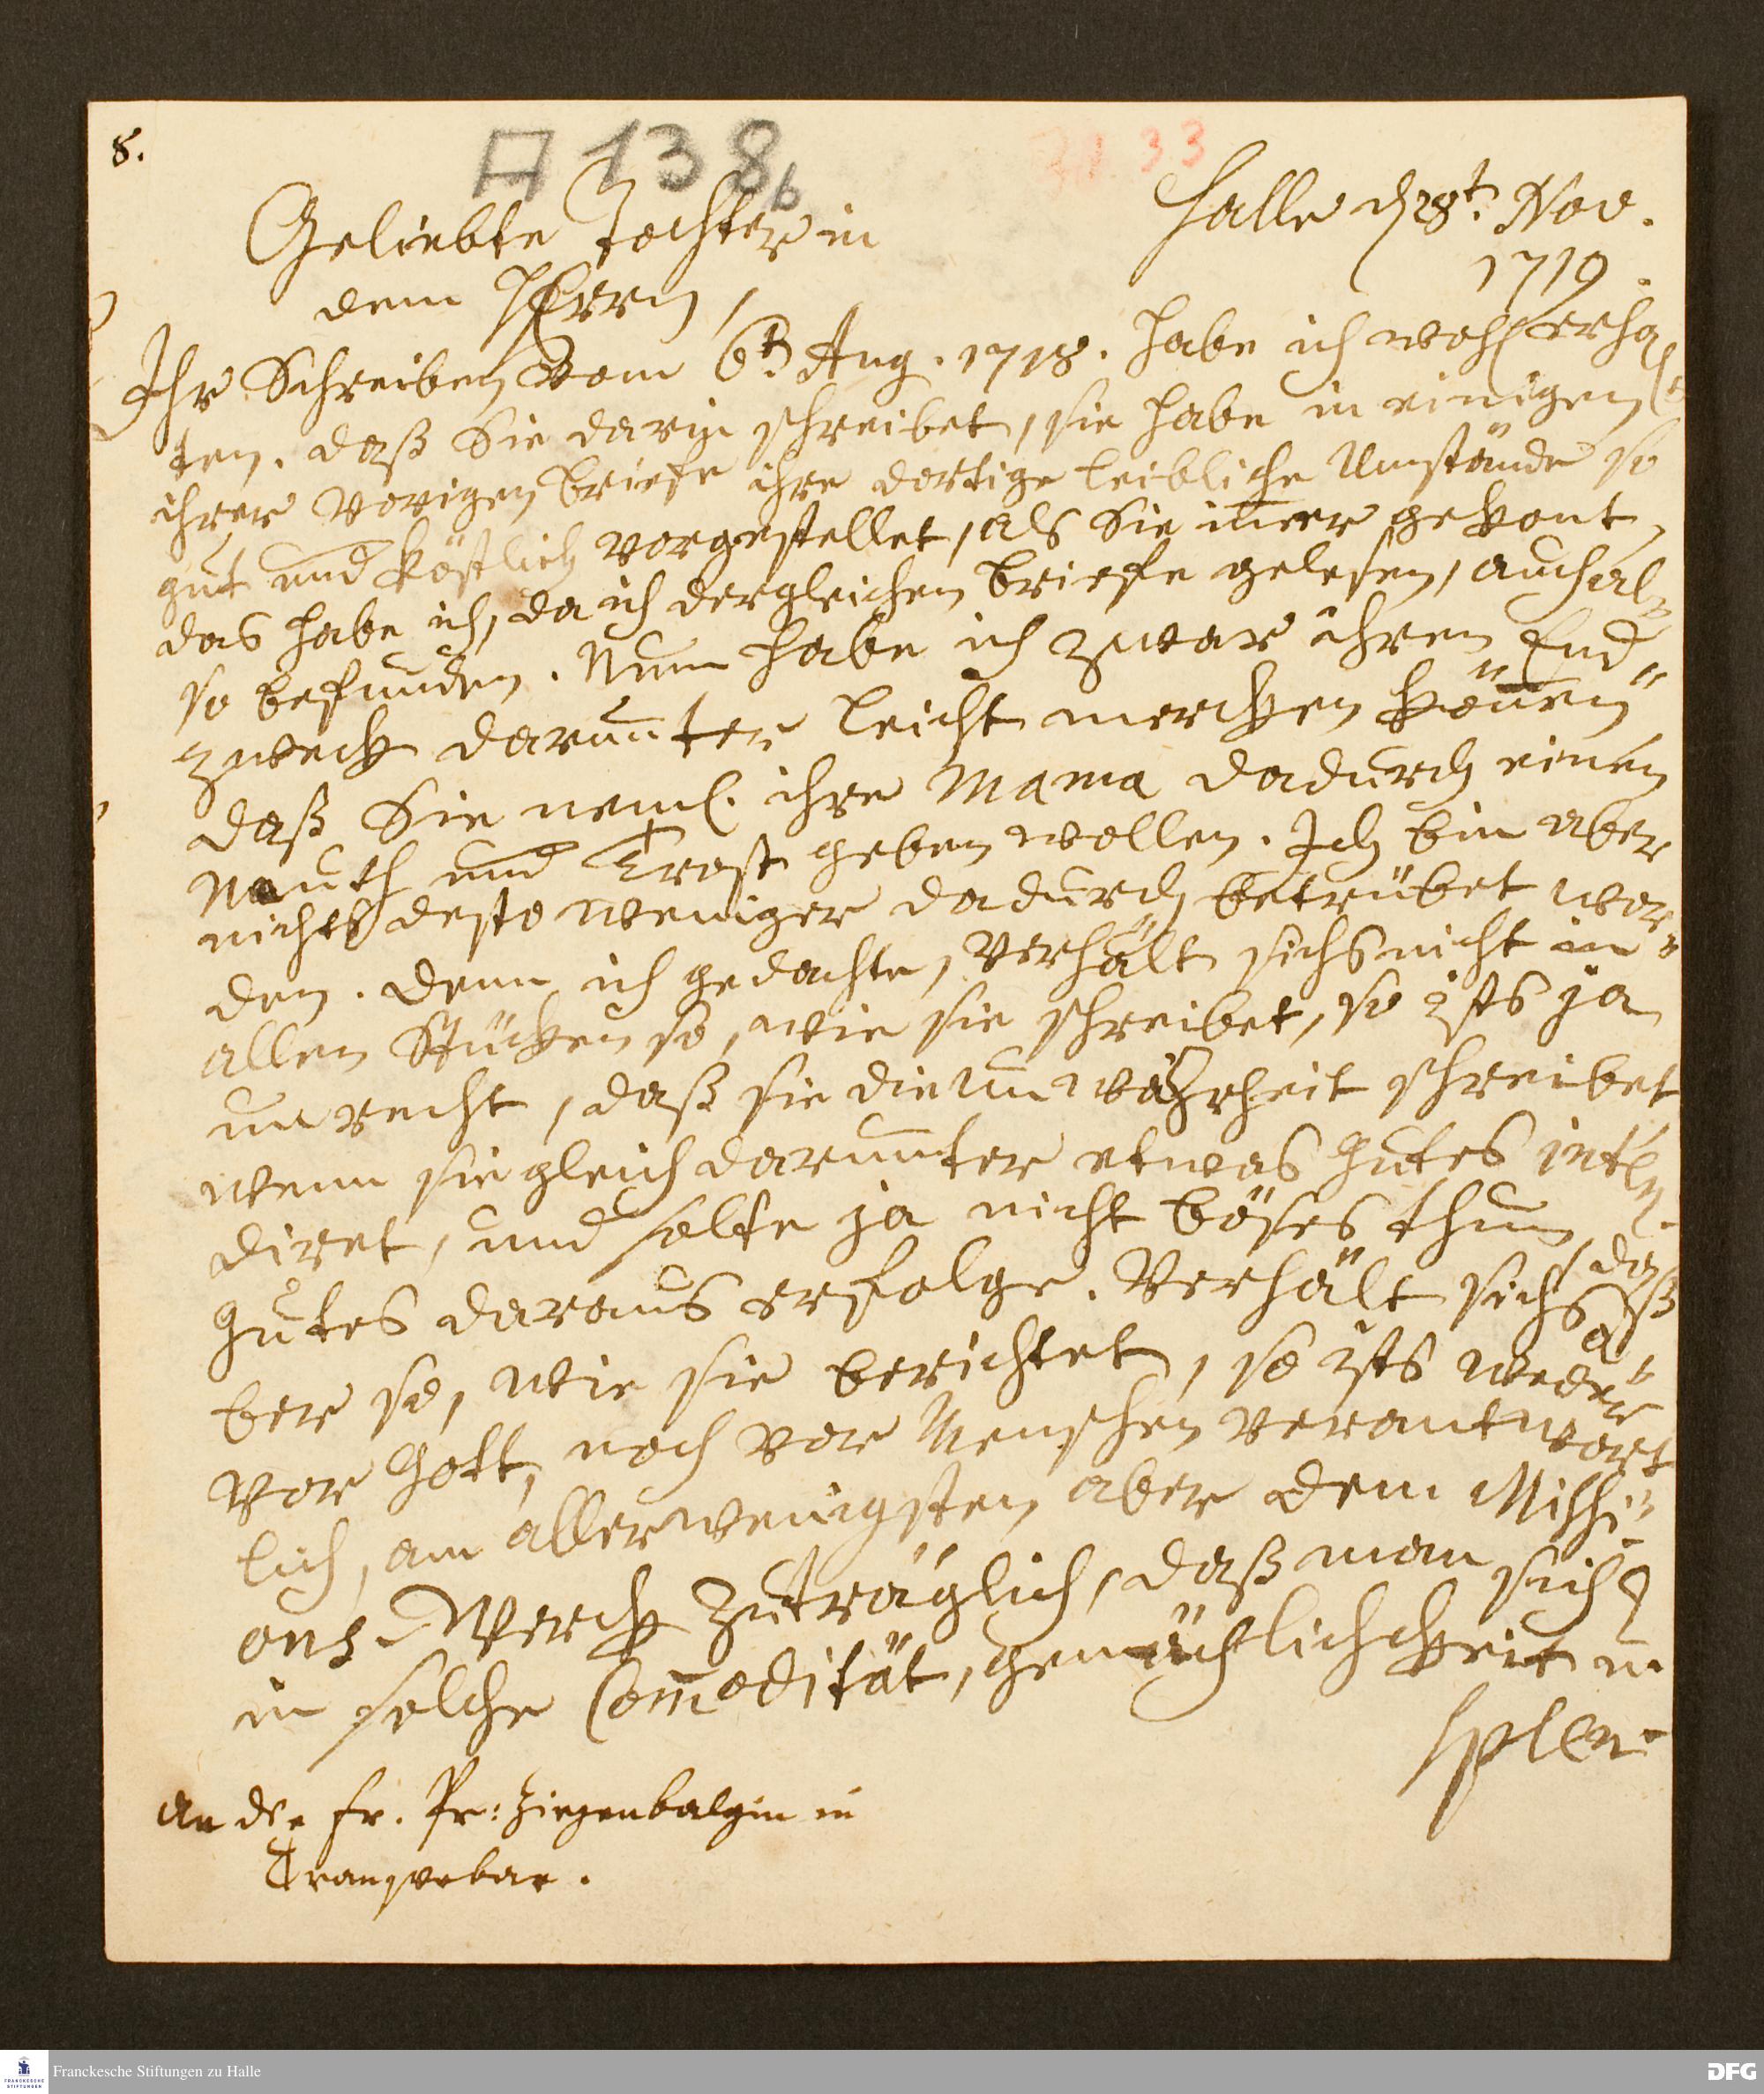 8.
A 138b
33
Halle d 28t. Nov.
1719.
Geliebte Tochter in
dem HErrn,
Ihr Schreiben vom 6t. Aug. 1718. habe ich wohl erhal
ten. daß Sie darin schreibet, sie habe in einigen
ihrer vorigen briefe ihre dortige leibliche Umstände so
gut und köstlich vorgestellet, als Sie im̄er gekont,
das habe ich, da ich dergleichen briefe gelesen, auch al-
so befunden. Nun habe ich zwar ihren End-
zweck darunter leicht mercken kön̄en
daß Sie neml. ihre Mama dadurch einen
Muth und Trost geben wollen. Ich bin aber
nichts desto weniger dadurch betrübet wor-
den. denn ich gedachte, verhält sichs nicht in
allen Stücken so, wie sie schreibet, so ists ja
unrecht, daß sie die unwahrheit schreibet
wenn sie gleich darunter etwas gutes inten-
diret, und solte ja nicht böses thun, daß
gutes daraus erfolge. Verhält sichs a-
ber so, wie sie berichtet, so ists weder
vor Gott, noch vor Menschen verantwort
lich, am allerwenigsten aber dem Missi-
ons-Werck zuträglich, daß man sich
in solche Com̄odität, gemächlichkeit u.
splen-
An die Fr. Pr: Ziegenbalgin in
Tranquebar.
Franckesche Stiftungen zu Halle
FRANCKESCHE
STIFTUNGEN
DFG